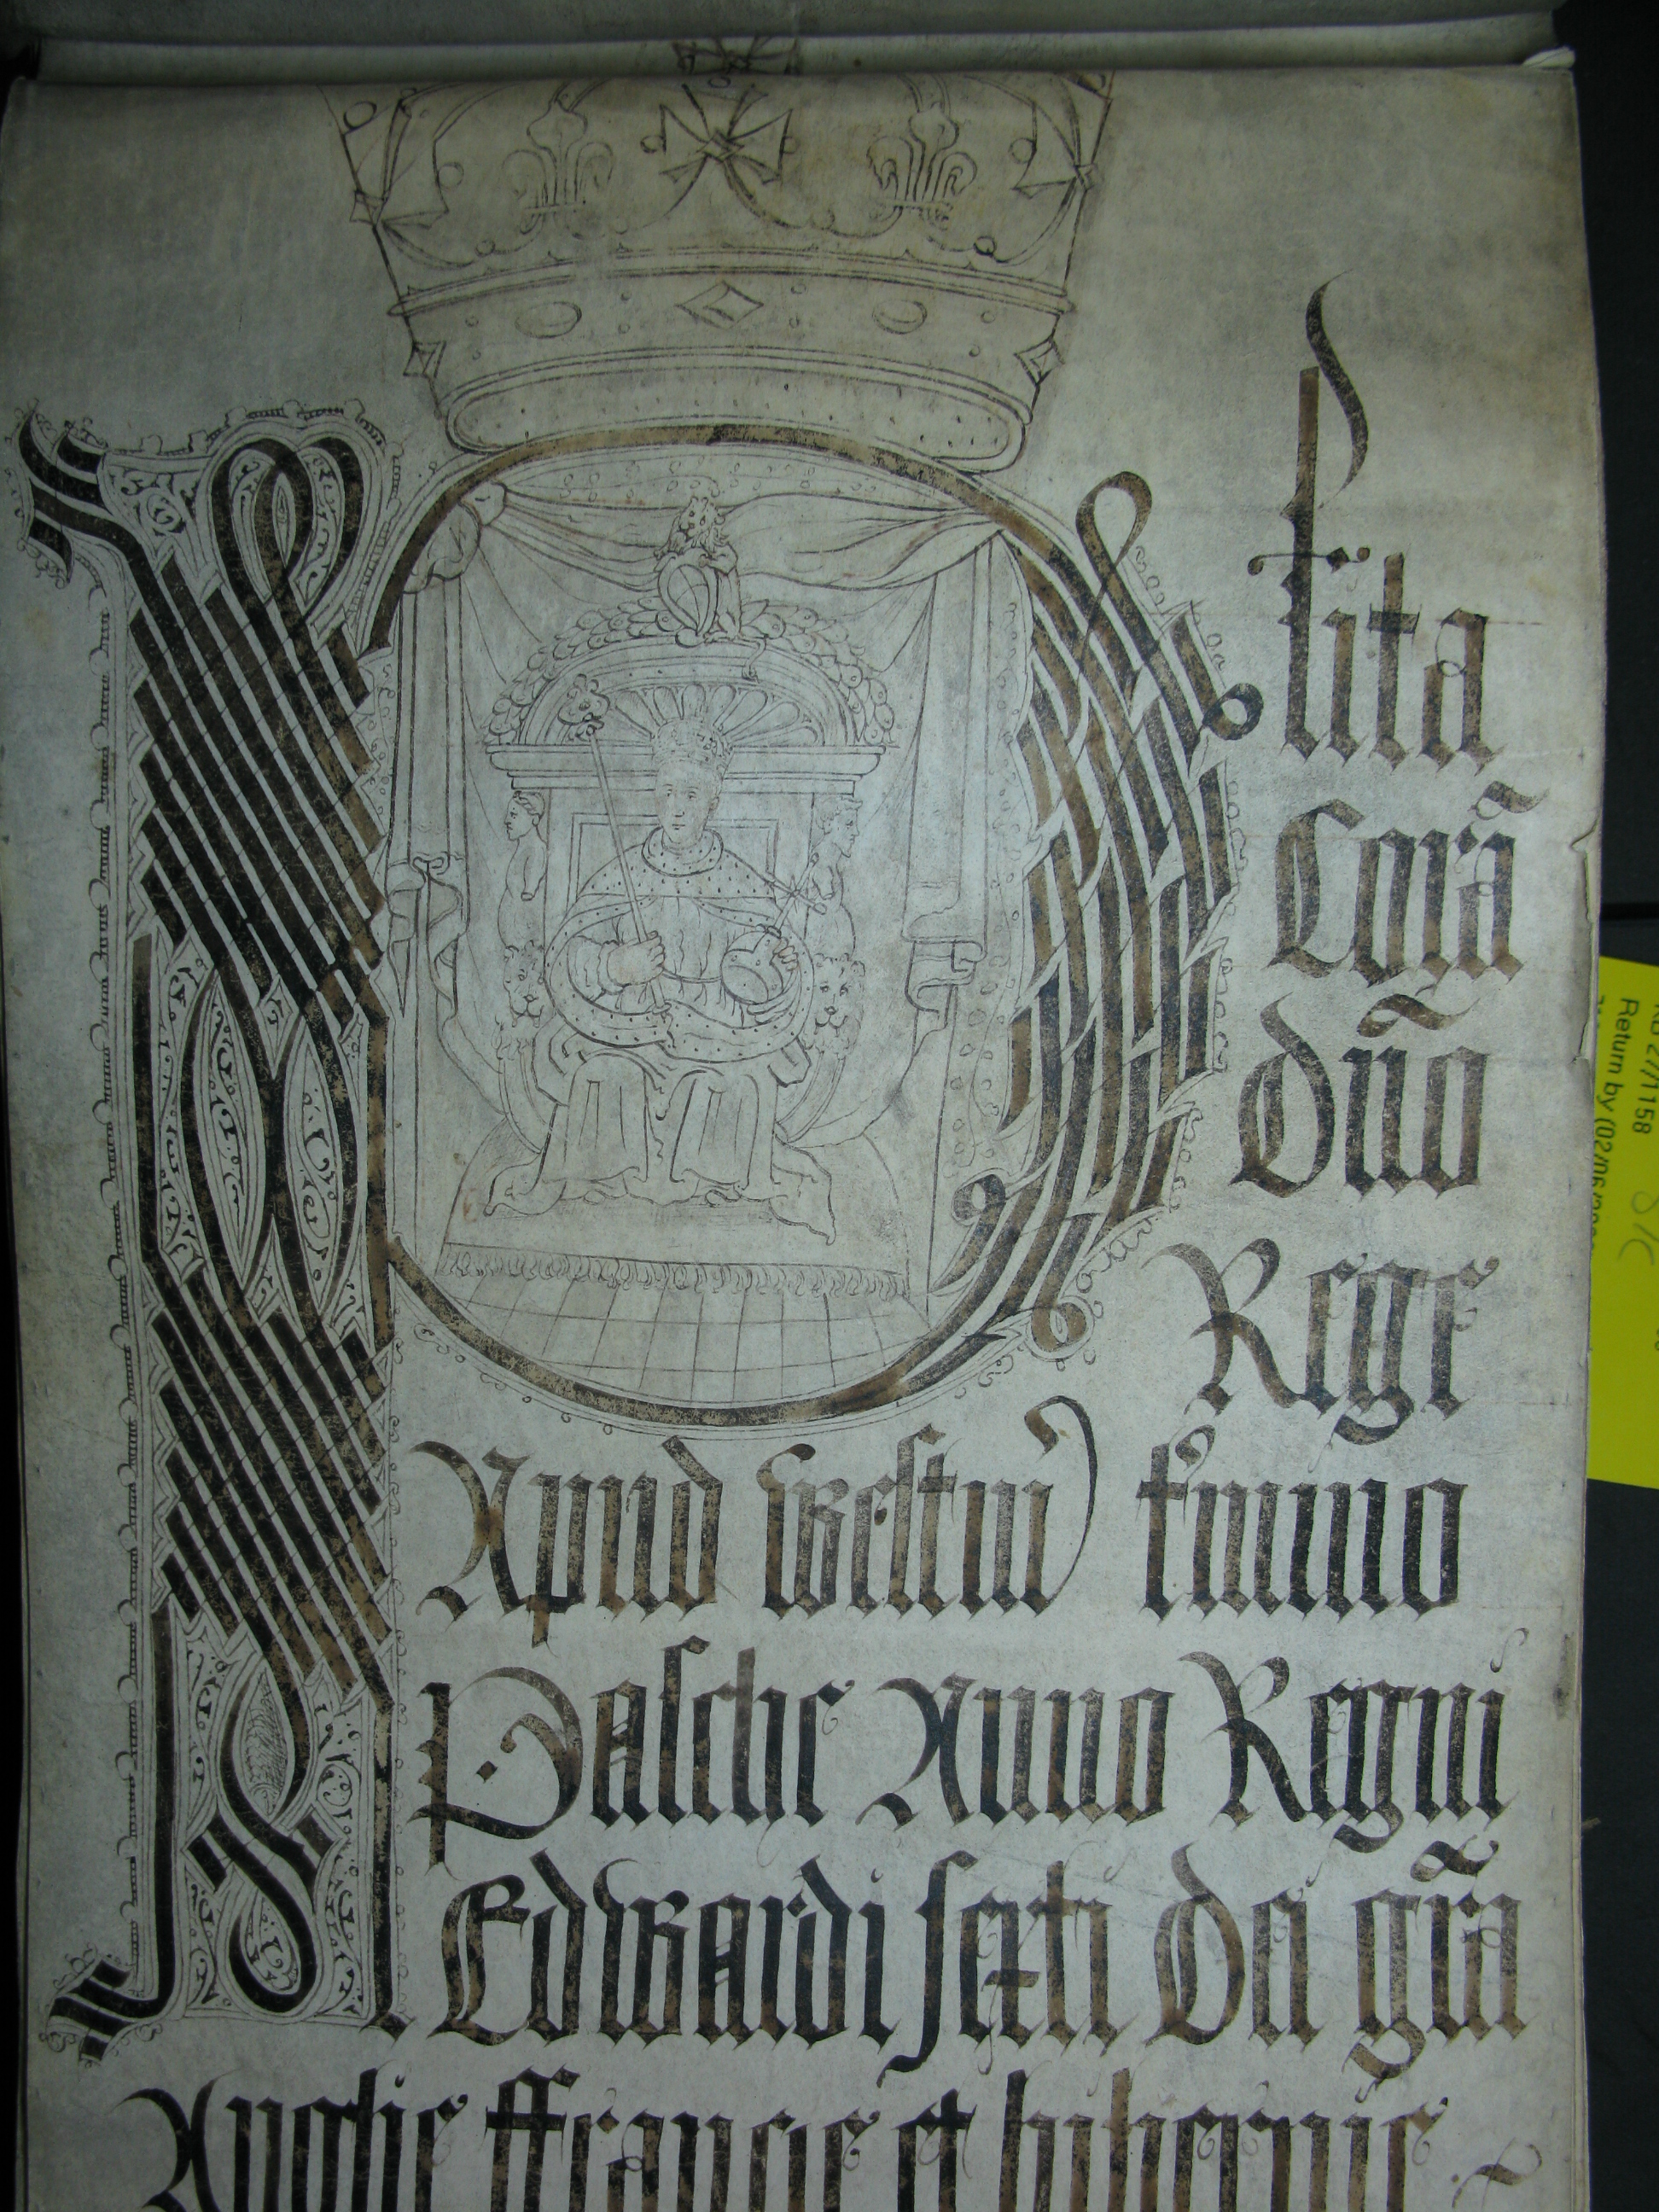 Plita
Corã
dño
Rege
Apud Westm̃ t'mino
Pasche Anno Regni
Edwardi sexti Dei gr̃a
Anglie ffrancie et hibernie
KB 27/1158
Return by (02/06/20